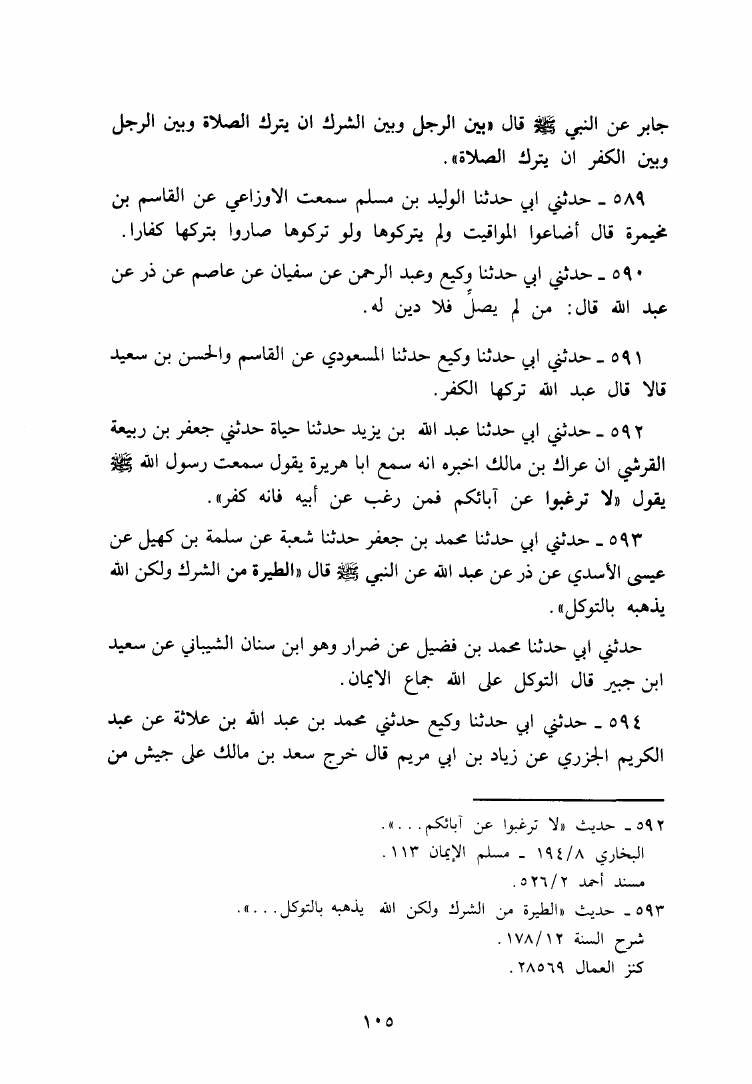 جابر عن النبي ﷺ قال «بين الرجل وبين الشرك ان يترك الصلاة وبين الرجل
وبين الكفر ان يترك الصلاة».
٥٨٩ ـ حدثني ابي حدثنا الوليد بن مسلم سمعت الاوزاعي عن القاسم بن
مخيمرة قال أضاعوا المواقيت ولم يتركوها ولو تركوها صاروا بتركها كفارا.
٥٩٠ ـ حدثني ابي حدثنا وكيع وعبد الرحمن عن سفيان عن عاصم عن ذر عن
عبد الله قال: من لم يصلِّ فلا دين له.
٥٩١ ـ حدثني ابي حدثنا وكيع حدثنا المسعودي عن القاسم والحسن بن سعيد
قالا قال عبد الله تركها الكفر.
٥٩٢ ـ حدثني ابي حدثنا عبد الله بن يزيد حدثنا حياة حدثني جعفر بن ربيعة
القرشي ان عراك بن مالك اخبره انه سمع ابا هريرة يقول سمعت رسول الله ﷺ
يقول «لا ترغبوا عن آبائكم فمن رغب عن أبيه فانه كفر».
٥٩٣ ـ حدثني ابي حدثنا محمد بن جعفر حدثنا شعبة عن سلمة بن كهيل عن
عيسى الأسدي عن ذر عن عبد الله عن النبي ﷺ قال «الطيرة من الشرك ولكن الله
يذهبه بالتوكل».
حدثني ابي حدثنا محمد بن فضيل عن ضرار وهو ابن سنان الشيباني عن سعيد
ابن جبير قال التوكل على الله جماع الايمان.
٥٩٤ ـ حدثني ابي حدثنا وكيع حدثني محمد بن عبد الله بن علاثة عن عبد
الكريم الجزري عن زياد بن ابي مريم قال خرج سعد بن مالك على جيش من
٥٩٢ ـ حديث «لا ترغبوا عن آبائكم...».
البخاري ١٩٤/٨ ـ مسلم الإيمان ١١٣.
مسند أحمد ٥٢٦/٢.
٥٩٣ ـ حديث «الطيرة من الشرك ولكن الله يذهبه بالتوكل...».
شرح السنة ١٧٨/١٢.
كنز العمال ٢٨٥٦٩.
١٠٥